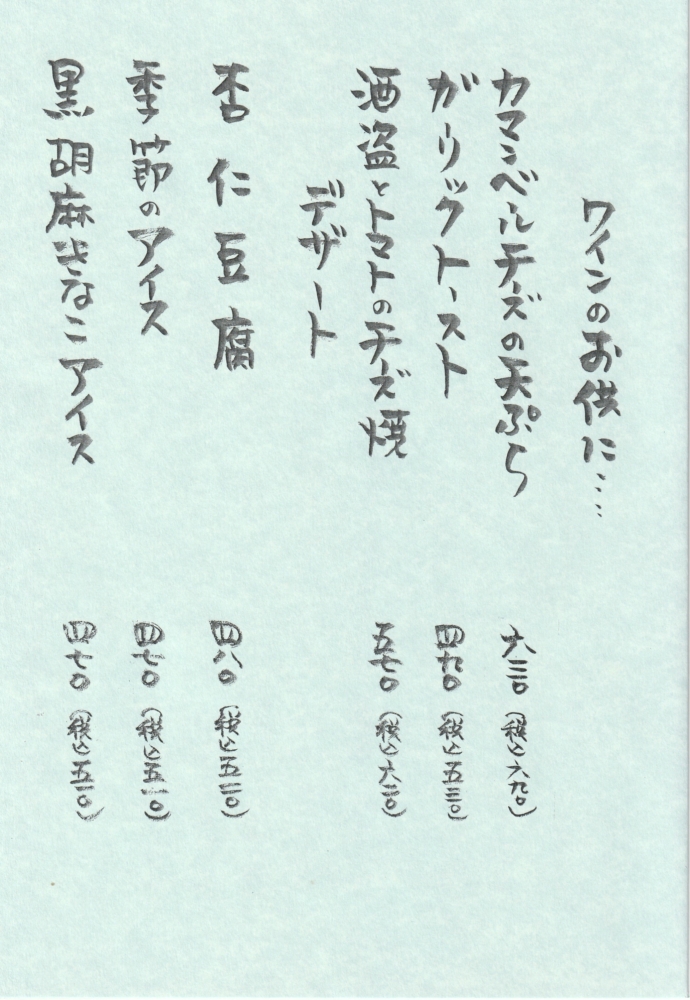 ワインのお供に…
カマンベールチーズの天ぷら 六三〇(税込六九〇)
ガーリックトースト 四九〇(税込五三〇)
酒盗とトマトのチーズ焼 五七〇(税込六二〇)
デザート
杏仁豆腐 四八〇(税込五二〇)
季節のアイス 四七〇(税込五一〇)
黒胡麻きなこアイス 四七〇(税込五一〇)